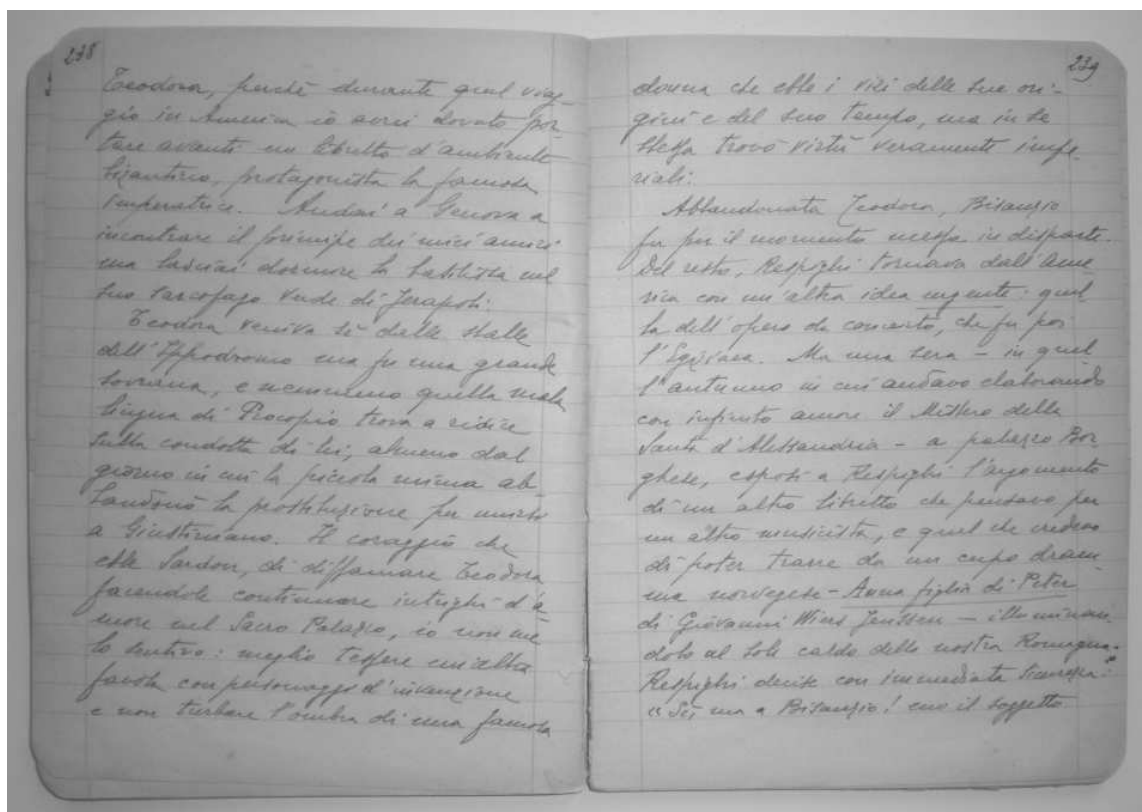 238
Teodora, perchè durante quel viag-
gio in America io avrei dovuto por-
tare avanti un libretto d'ambiente
bizantino, protagonista la famosa
imperatrice. Andai a Genova a
incontrare il principe dei miei amici
ma lasciai dormire la basilissa nel
suo sarcofago verde di Jerapoli.
Teodora veniva sì dalle stalle
dell'Ippodromo ma fu una grande
sovrana, e nemmeno quella mala
lingua di Procopio trova a ridire
sulla condotta di lei, almeno dal
giorno in cui la piccola mima ab-
bandonò la prostituzione per unirsi
a Giustiniano. Il coraggio che
ebbe Sardou, di diffamare Teodora
facendole continuare intrighi d'a-
more nel Sacro Palazio, io non me
lo sentivo: meglio tessere un'altra
favola con personaggi d'invenzione
e non turbare l'ombra di una famosa
239
donna che ebbe i vizi delle sue ori-
gini e del suo tempo, ma in se
stessa trovò virtù veramente impe-
riali.
Abbandonata Teodora, Bisanzio
fu per il momento messa in disparte.
Del resto, Respighi tornava dall'Ame
rica con un'altra idea urgente: quel
la dell'opera da concerto, che fu poi
l'Egiziaca. Ma una sera - in quel
l'autunno in cui andavo elaborando
con infinito amore il Mistero della
Santa d'Alessandria - a palazzo Bor
ghese, esposi a Respighi l'argomento
di un altro libretto che pensavo per
un altro musicista, e quel che credevo
di poter trarre da un cupo dram
ma norvegese - Anna figlia di Peter
di Giovanni Wiers Jenssen - illuminan
dolo al sole caldo della nostra Romagna.
Respighi decise con immediata
"Sì, ma a Bisanzio! ecco il soggetto